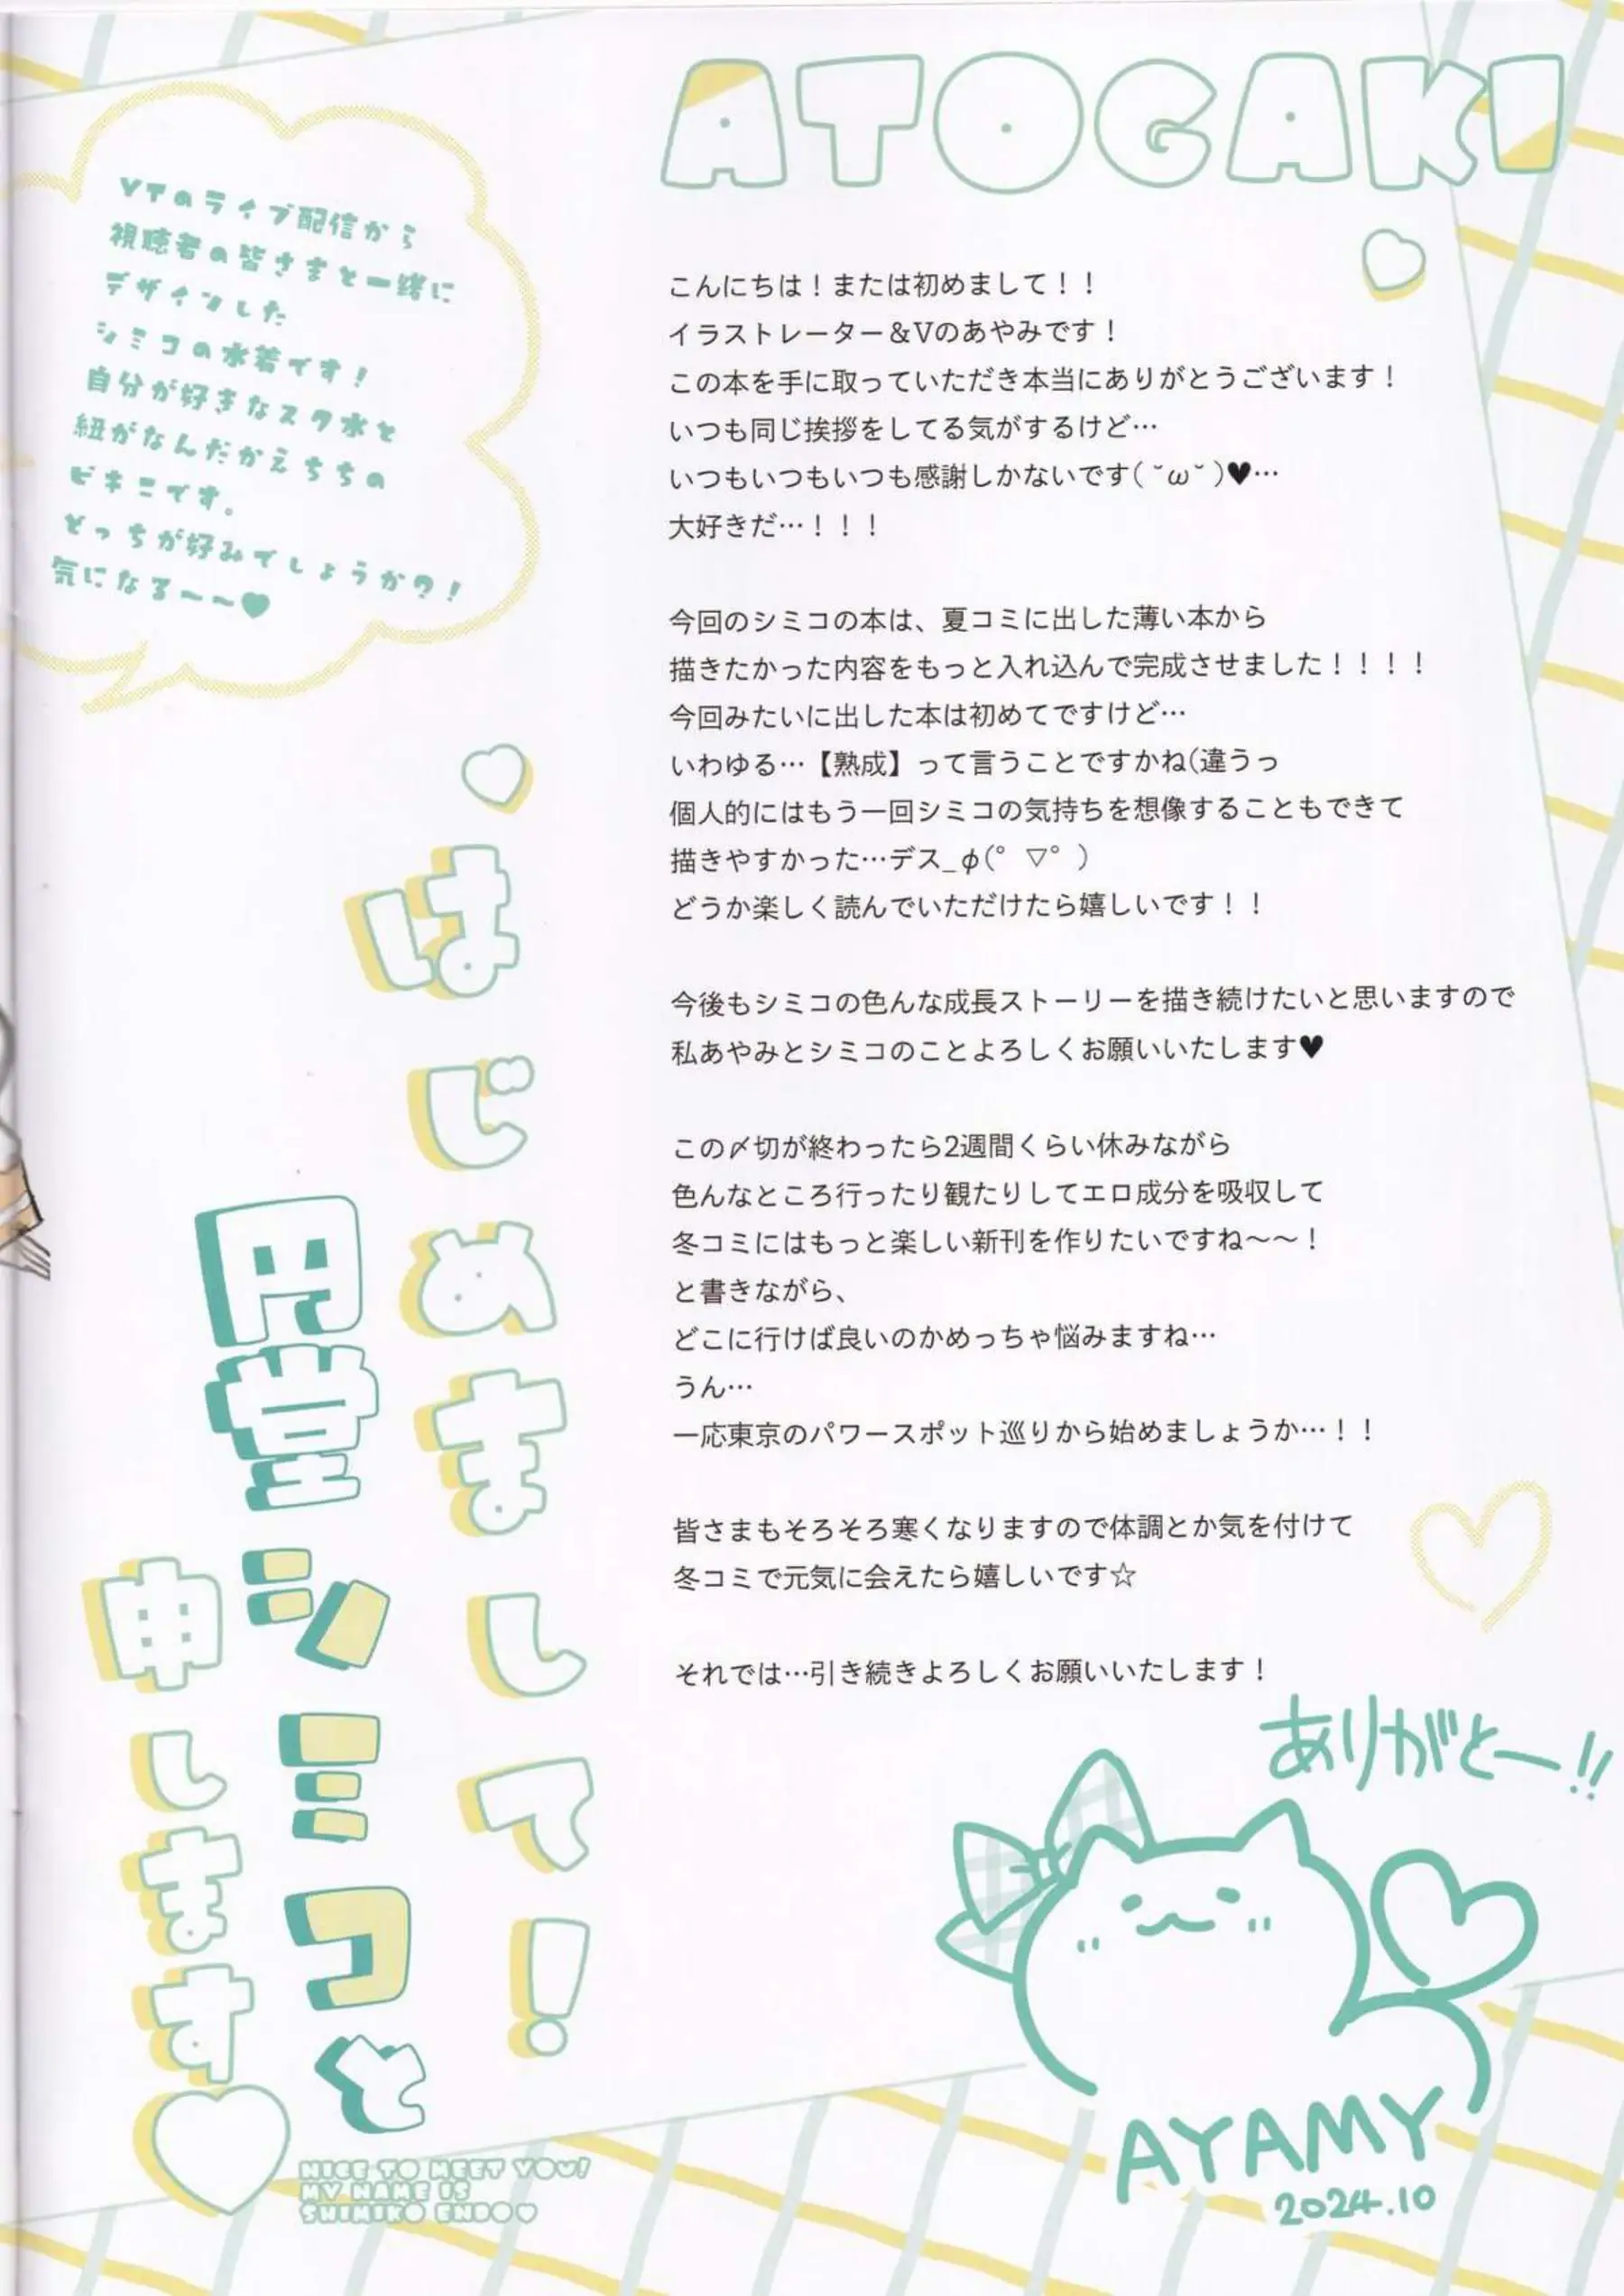 ATOGAKI
こんにちは！または初めまして！！
イラストレーター＆Vのあやみです！
この本を手に取っていただき本当にありがとうございます！
いつも同じ挨拶をしてる気がするけど…
いつもいつもいつも感謝しかないです(˘ω˘)♥…
大好きだ…！！！
今回のシミコの本は、夏コミに出した薄い本から
描きたかった内容をもっと入れ込んで完成させました！！！！
今回みたいに出した本は初めてですけど…
いわゆる…【熟成】って言うことですかね(違うっ
個人的にはもう一回シミコの気持ちを想像することもできて
描きやすかった…デス_φ(゜▽゜)
どうか楽しく読んでいただけたら嬉しいです！！
今後もシミコの色んな成長ストーリーを描き続けたいと思いますので
私あやみとシミコのことよろしくお願いいたします♥
この〆切が終わったら2週間くらい休みながら
色んなところ行ったり観たりしてエロ成分を吸収して
冬コミにはもっと楽しい新刊を作りたいですね〜〜！
と書きながら、
どこに行けば良いのかめっちゃ悩みますね…
うん…
一応東京のパワースポット巡りから始めましょうか…！！
皆さまもそろそろ寒くなりますので体調とか気を付けて
冬コミで元気に会えたら嬉しいです☆
それでは…引き続きよろしくお願いいたします！
ありがとー!!
AYAMY
2024.10
VTのライブ配信から
視聴者の皆さまと一緒に
デザインした
シミコの水着です！
自分が好きなスク水と
紐がなんだかえちちの
ビキニです。
どっちが好みでしょうか？！
気になる〜〜♥
はじめまして！
円堂シミコと
申します♡
NICE TO MEET YOU!
MY NAME IS
SHIMIKO ENDO♥